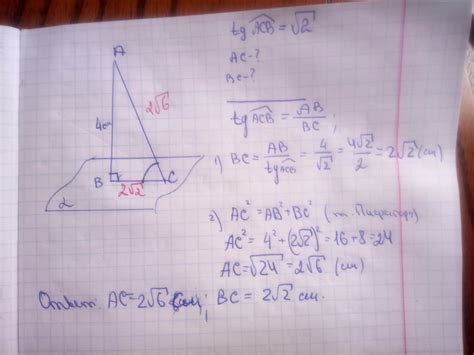 tg ACB = √2
AC - ?
BC - ?
tg ACB = AB/BC ;
1) BC = AB/tg ACB = 4/√2 = 4√2/2 = 2√2 (см)
2) AC² = AB² + BC² (т. Пифагора)
AC² = 4² + (2√2)² = 16 + 8 = 24
AC = √24 = 2√6 (см)
A
4см
2√6
B
2√2
C
α
Ответ: AC = 2√6 см; BC = 2√2 см.